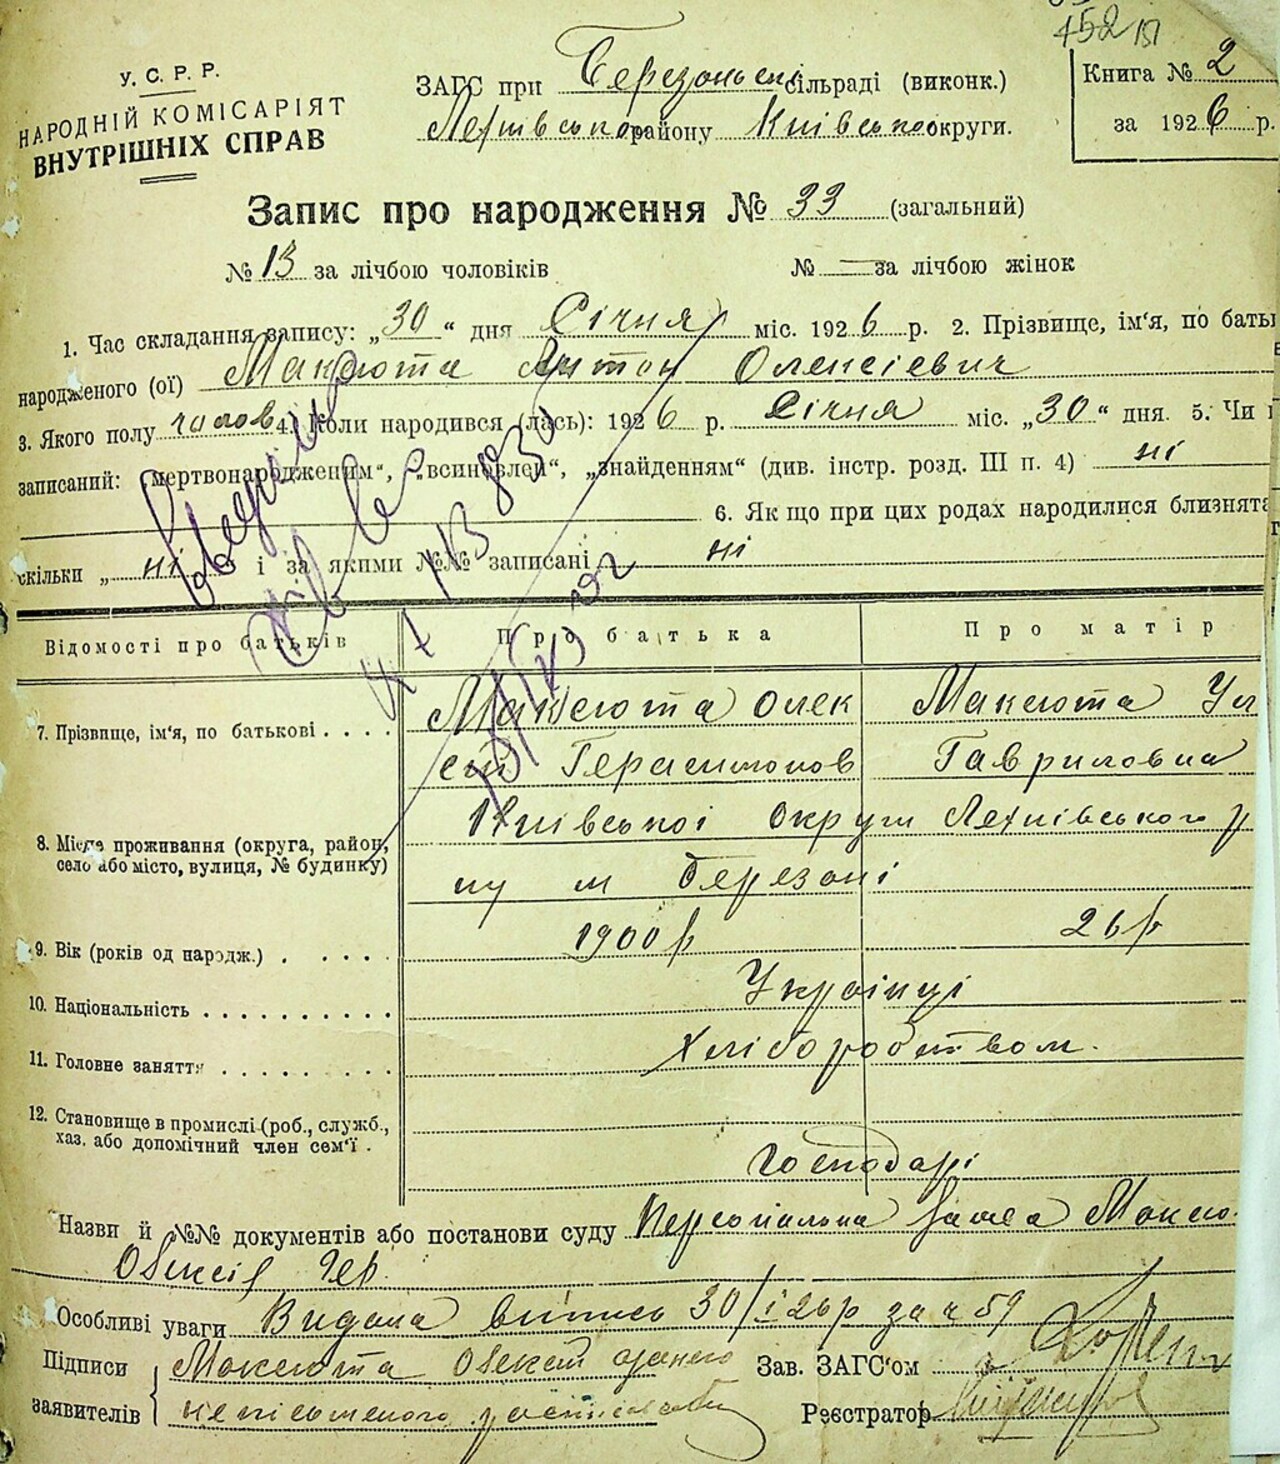 452
У. С. Р. Р.
НАРОДНІЙ КОМІСАРІЯТ
ВНУТРІШНІХ СПРАВ
ЗАГС при Березоньскі сільраді (виконк.)
району Київсько округи.
Книга № 2
за 1926 р.
Запис про народження № 33 (загальний)
№ 13 за лічбою чоловіків № — за лічбою жінок
1. Час складання запису: „30“ дня Січня міс. 1926 р. 2. Прізвище, ім‘я, по батьк
народженого (ої) Максюта Антон Олексієвич
3. Якого полу чолов 4. Коли народився (лась): 1926 р. Січня міс. „30“ дня. 5. Чи
записаний: „мертвонародженим“, „всиновлен“, „знайденням“ (див. інстр. розд. III п. 4) ні
6. Як що при цих родах народилися близнята
скільки „ ні і за якими №№ записані ні
Відомості про батьків Про батька Про матір
7. Прізвище, ім‘я, по батькові . . . . Максюта Олек Максюта Ул
сій Герасимов Гавриловна
8. Місце проживання (округа, район, село або місто, вулиця, № будинку) Київської Округи
ну м Березані
9. Вік (років од народж.) . . . . . 1900 р 26 р
10. Національність . . . . . . . . . . Українці
11. Головне заняття . . . . . . . . Хліборобством.
12. Становище в промислі (роб., служб., хаз. або допомічний член сем‘ї . Господарі
Назви й №№ документів або постанови суду Персональна Максю
Олексія Гер.
Особливі уваги Видана випись 30/I 26 р за № 59
Підписи Максюта Олексій Зав. ЗАГС‘ом
заявителів неписьменого Реєстратор